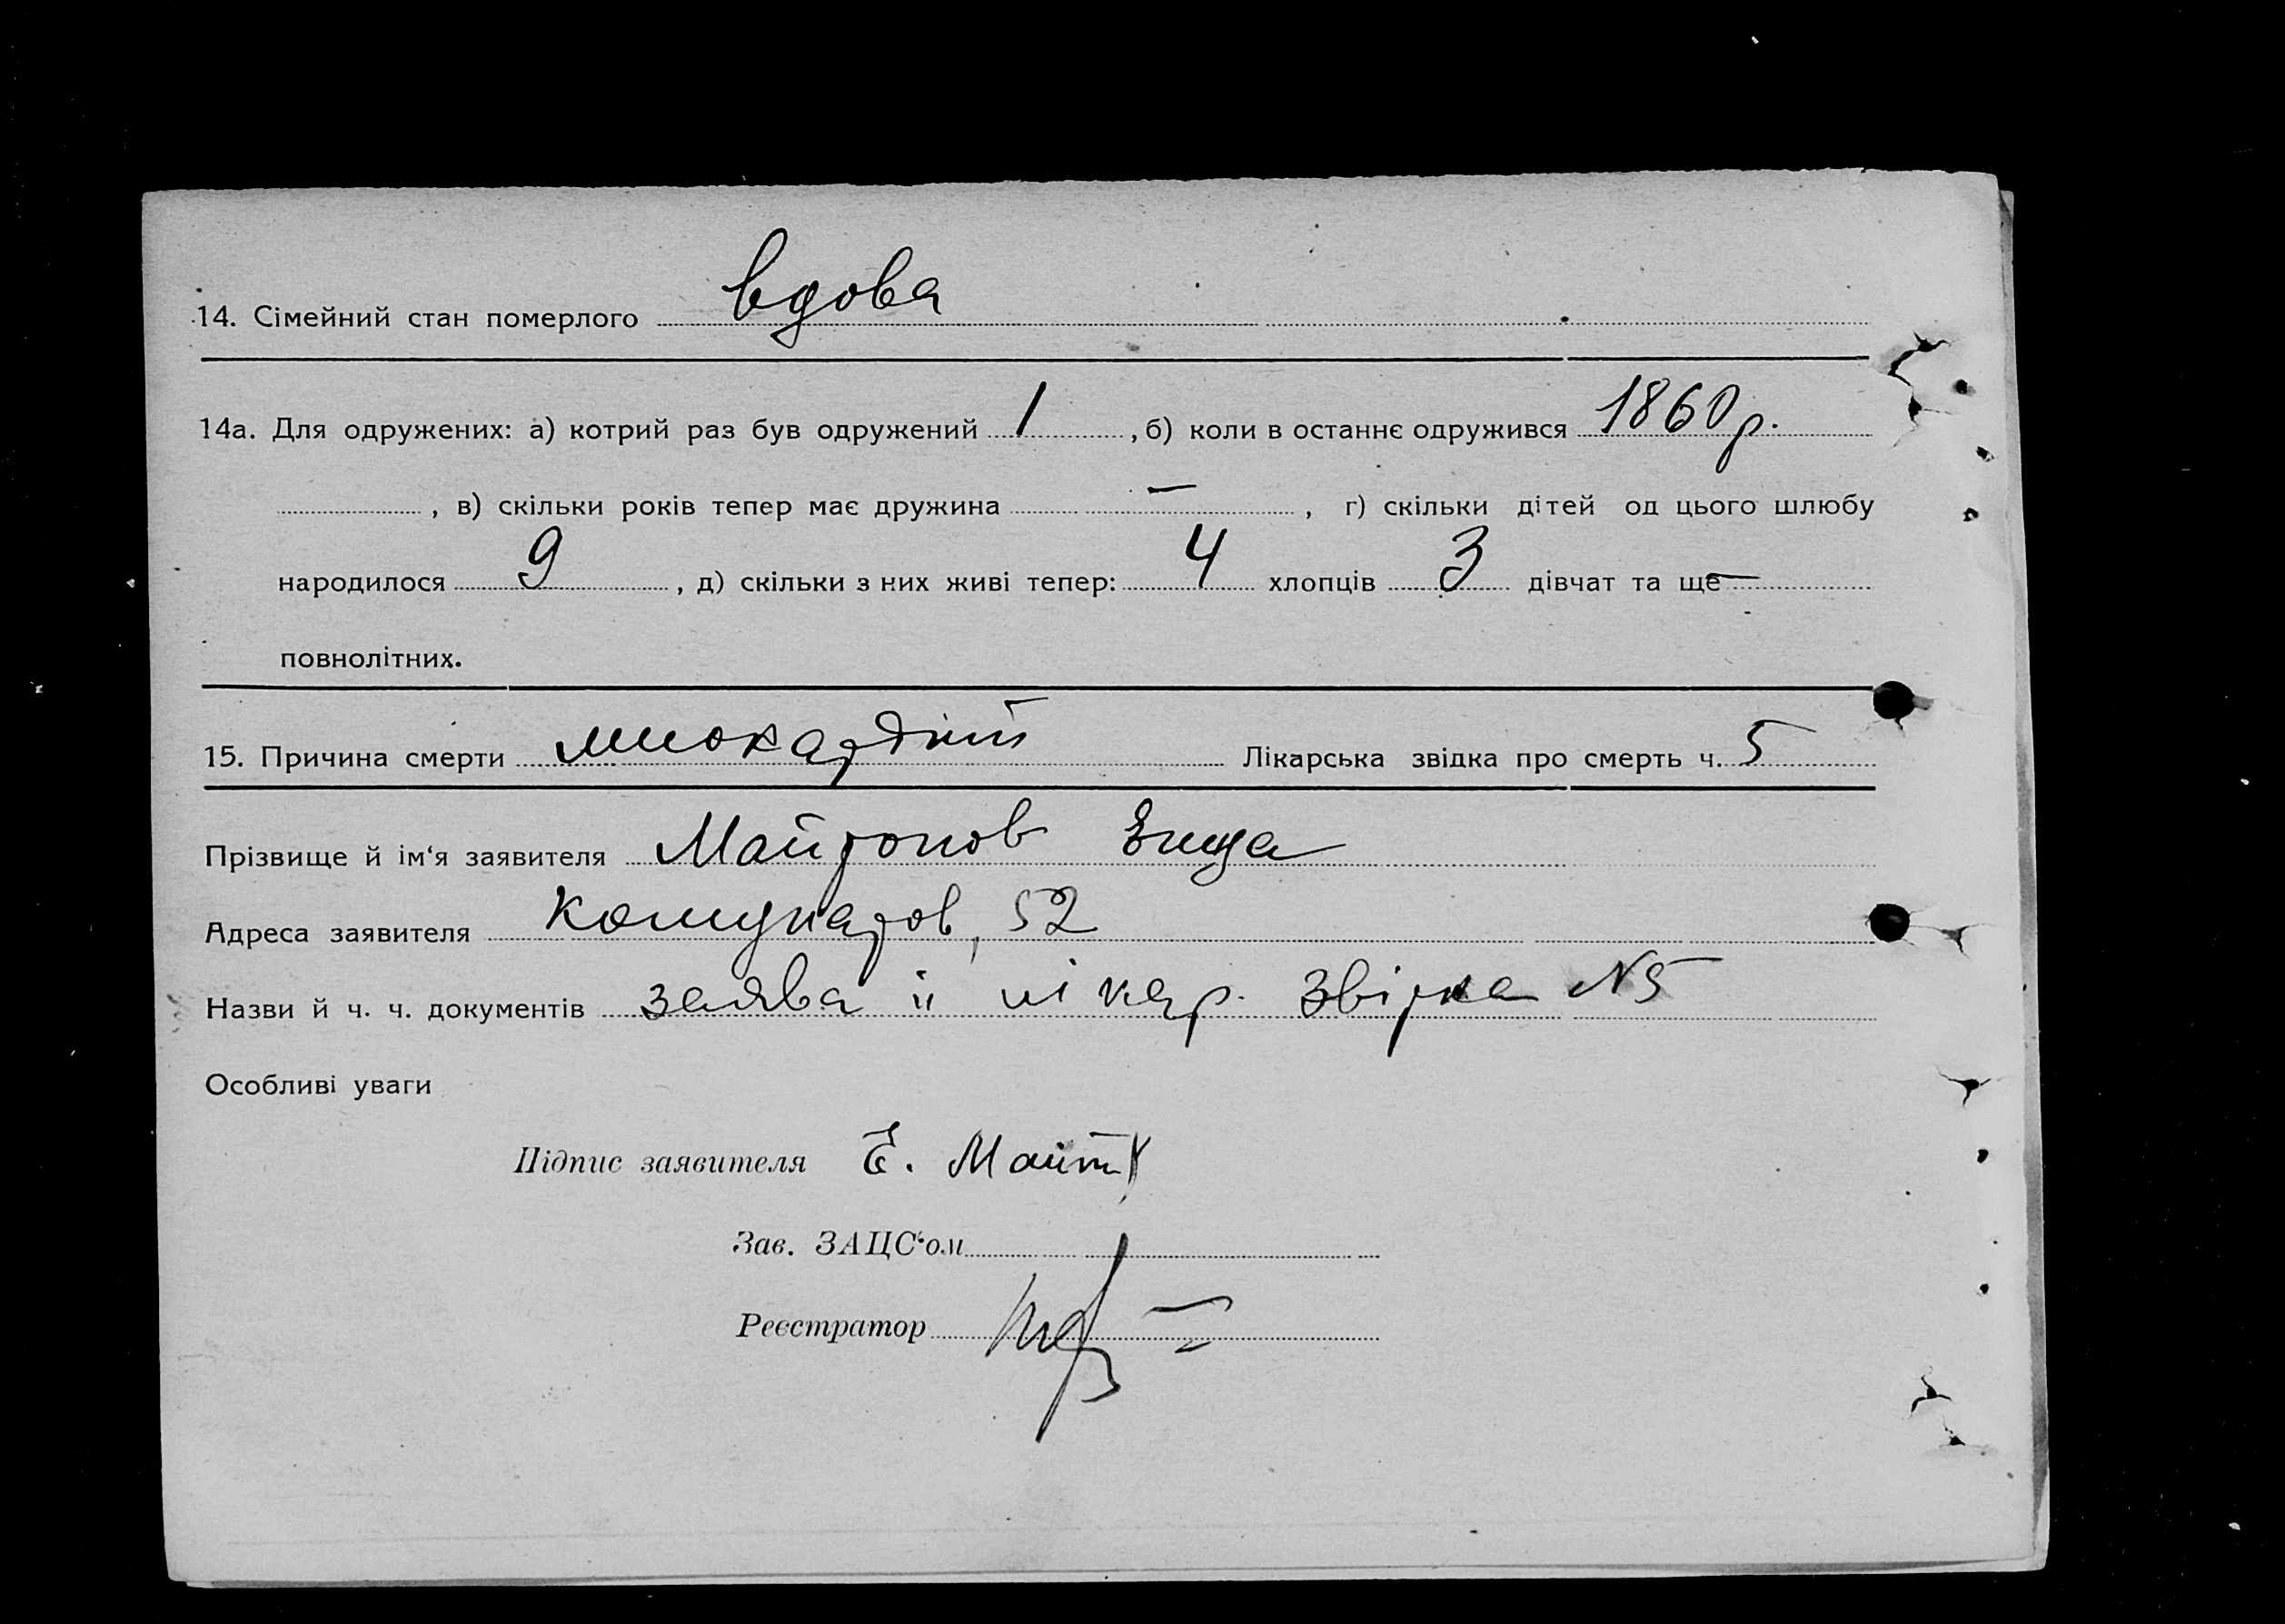 14. Сімейний стан померлого вдова
14а. Для одружених: а) котрий раз був одружений 1, б) коли в останнє одружився 1860 р.
, в) скільки років тепер має дружина —, г) скільки дітей од цього шлюбу
народилося 9, д) скільки з них живі тепер: 4 хлопців 3 дівчат та ще —
повнолітних.
15. Причина смерти миокардіт Лікарська звідка про смерть ч. 5
Прізвище й ім‘я заявителя
Адреса заявителя Комунаров, 52
Назви й ч. ч. документів заява й лікар. звідка N5
Особливі уваги
Підпис заявителя Е.
Зав. ЗАЦС‘ом
Реєстратор